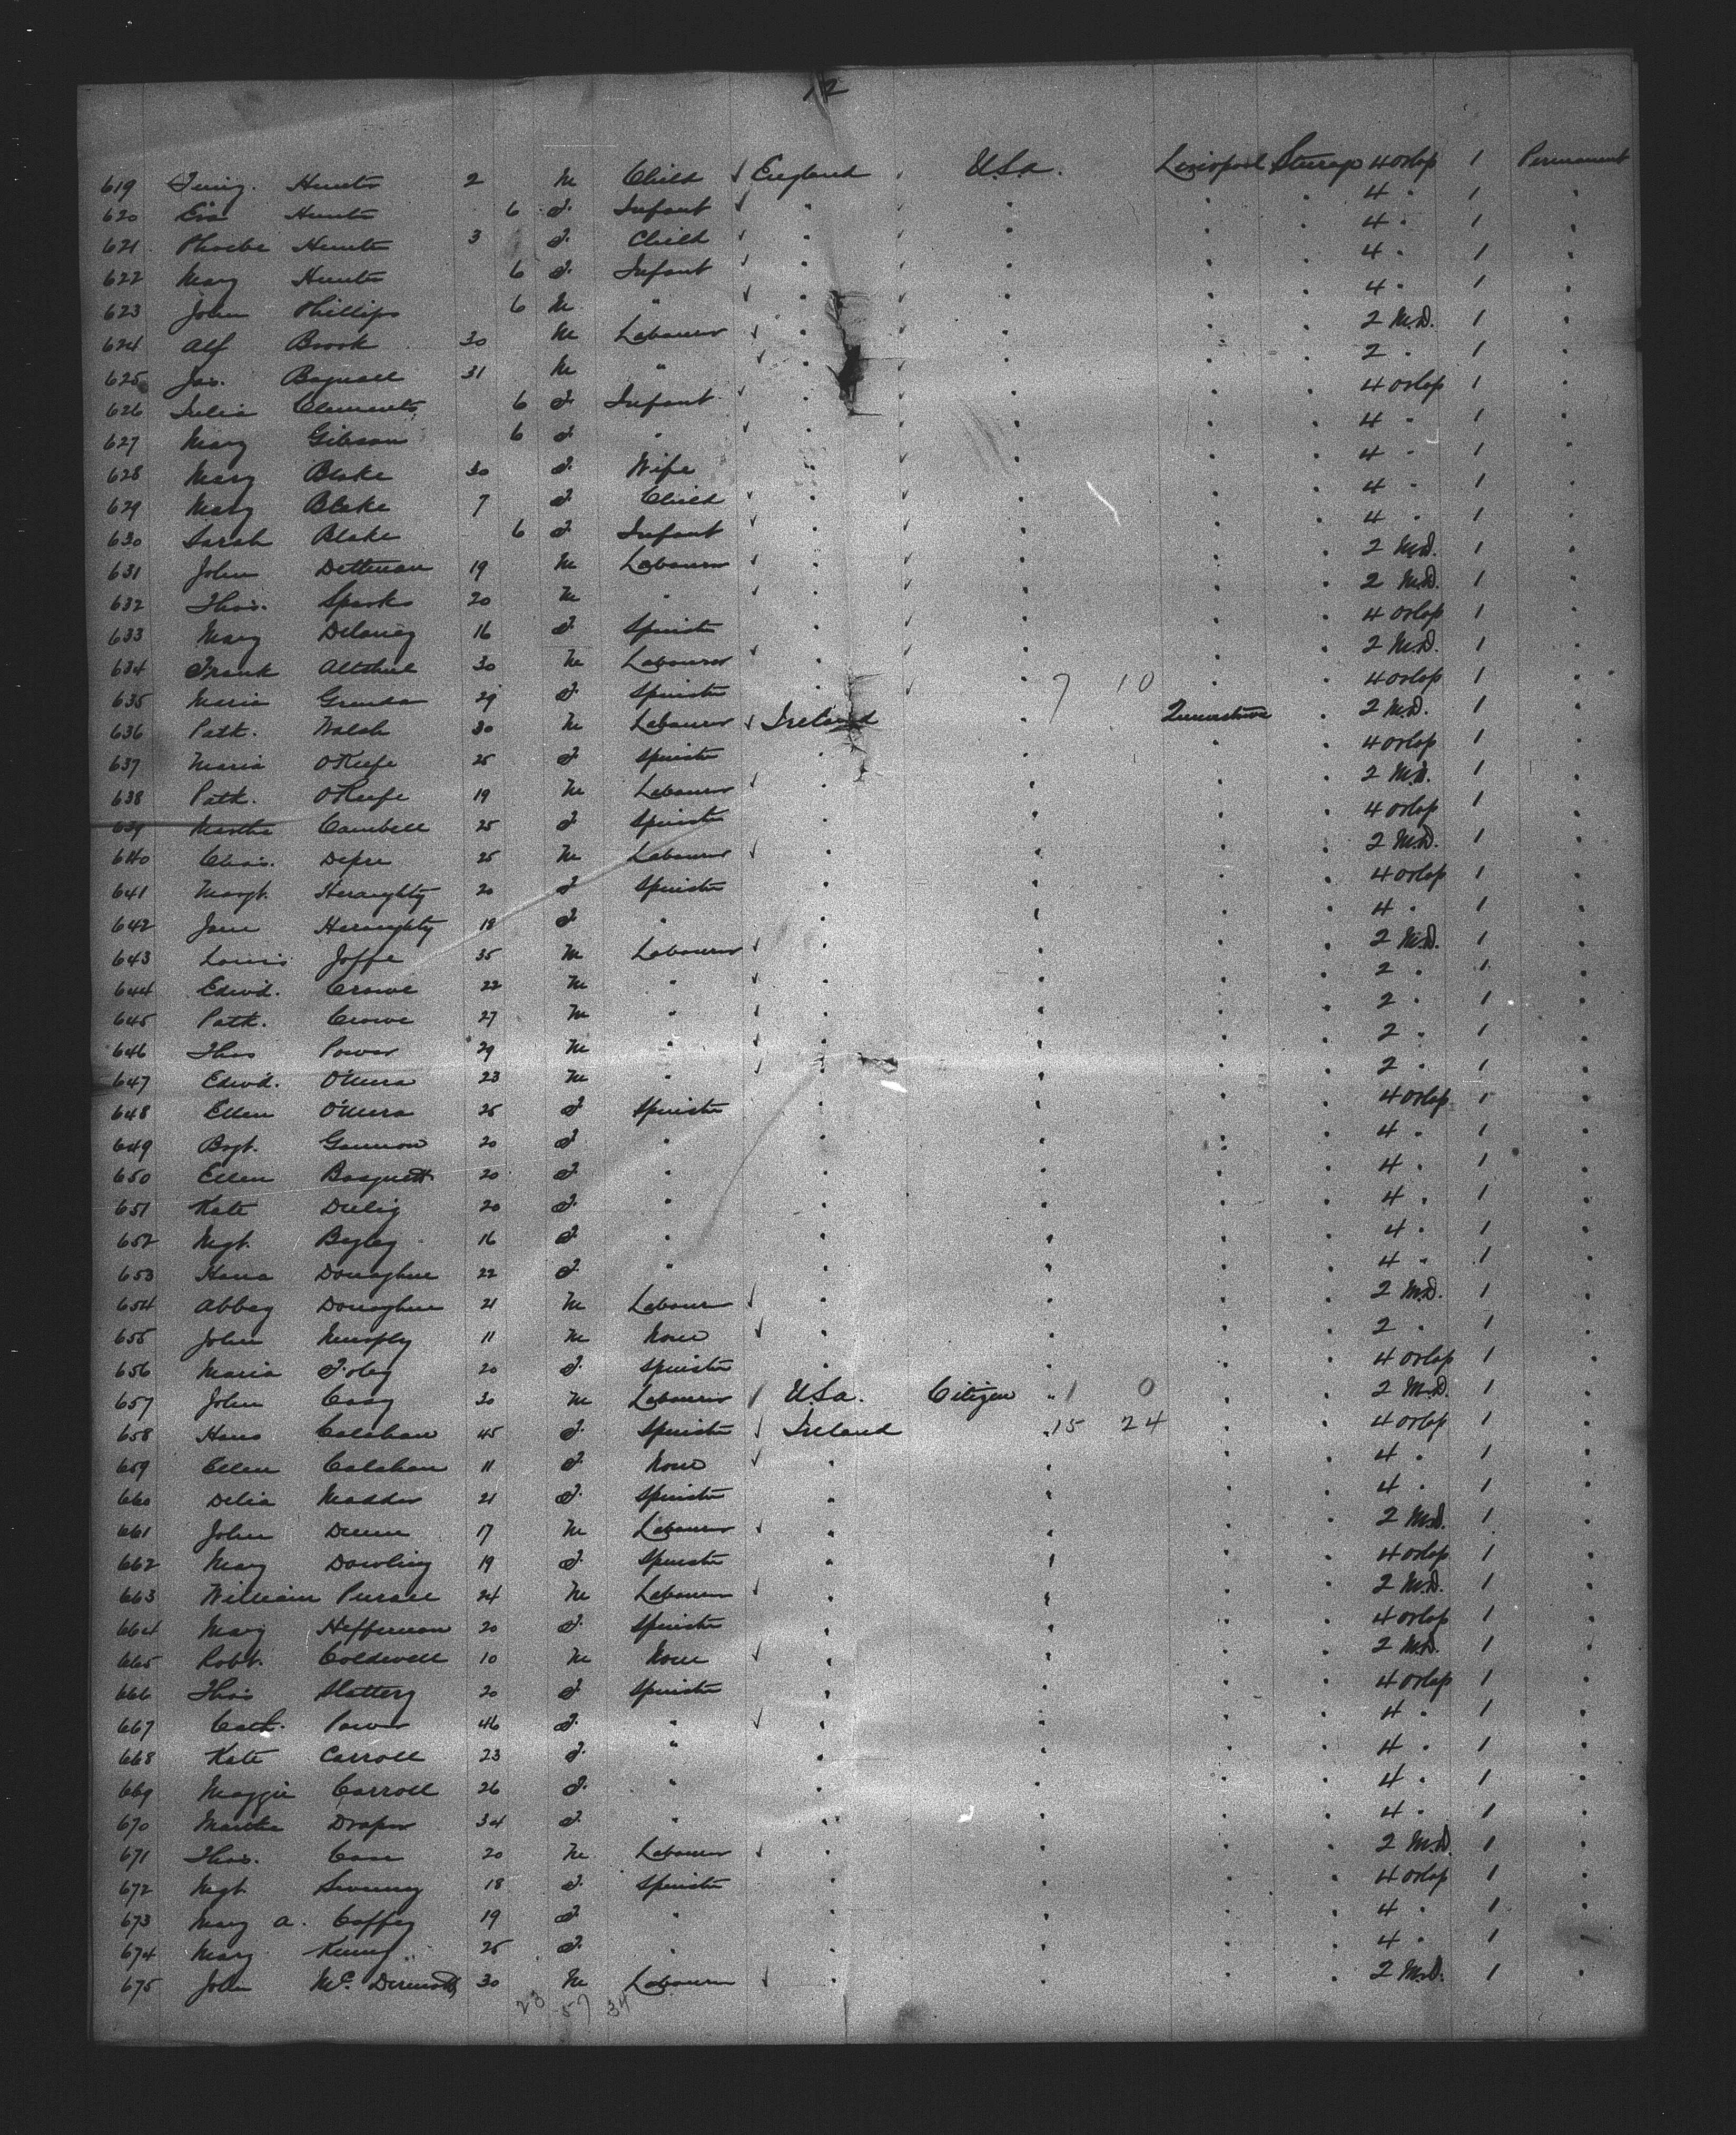 12
619 Hunter 2 M Child England U.S.A. Liverpool Steerage 4 orlop 1 Permanent
620 Eva Hunter 6 F. Infant " " " " 4 " 1 "
621 Phoebe Hunter 3 F. Child " " " " 4 " 1 "
622 Mary Hunter 6 F. Infant " " " " 4 " 1 "
623 John Phillips 6 M. " " " " " 4 " 1 "
624 Alf Brook 30 M Labourer " " " " 2 M.D. 1 "
625 Jas. Bagnall 31 M " " " " " 2 " 1 "
626 Julia Clements 6 F Infant " " " " 4 orlop 1 "
627 Mary Gibson 6 F " " " " " 4 " 1 "
628 Mary Blake 30 F. Wife " " " " 4 " 1 "
629 Mary Blake 7 F Child " " " " 4 " 1 "
630 Sarah Blake 6 F Infant " " " " 4 " 1 "
631 John Dettman 19 M Labourer " " " " 2 M.D. 1 "
632 Thos. Sparks 20 M " " " " " 2 M.D. 1 "
633 Mary Delaney 16 F Spinster " " " " 4 orlop 1 "
634 Frank Altshul 30 M Labourer " " " " 2 M.D. 1 "
635 Maria 29 F. Spinster " " 7 10 " " 4 orlop 1 "
636 Patk. Walsh 30 M Labourer Ireland " Queenstown " 2 M.D. 1 "
637 Maria O'Keefe 25 F Spinster " " " " 4 orlop 1 "
638 Patk. O'Keefe 19 M Labourer " " " " 2 M.D. 1 "
639 Martha Cambell 25 F Spinster " " " " 4 orlop 1 "
640 Chas. 25 M Labourer " " " " 2 M.D. 1 "
641 Margt. Heraughty 20 F Spinster " " " " 4 orlop 1 "
642 Jane Heraughty 18 F " " " " " 4 " 1 "
643 Louis Joffe 35 M Labourer " " " " 2 M.D. 1 "
644 Edwd. Crowe 22 M " " " " " 2 " 1 "
645 Patk. Crowe 27 M " " " " " 2 " 1 "
646 Thos Power 29 M " " " " " 2 " 1 "
647 Edwd. O'Mera 23 M " " " " " 2 " 1 "
648 Ellen O'Mera 25 F Spinster " " " " 4 orlop 1 "
649 Bgt. Gannon 20 F " " " " " 4 " 1 "
650 Ellen 20 F " " " " " 4 " 1 "
651 Kate 20 F. " " " " " 4 " 1 "
652 Mgt. Begley 16 F " " " " " 4 " 1 "
653 Hana Donaghue 22 F. " " " " " 4 " 1 "
654 Abbey Donaghue 21 M Labourer " " " " 2 M.D. 1 "
655 John Murphy 11 M None " " " " 2 " 1 "
656 Maria Foley 20 F. Spinster " " " " 4 orlop 1 "
657 John Casey 30 M Labourer U.S.A. Citizen " 1 0 " " 2 M.D. 1 "
658 Hana Calahan 45 F. Spinster Ireland " 15 24 " " 4 orlop 1 "
659 Ellen Calahan 11 F None " " " " 4 " 1 "
660 Delia Madden 21 F. Spinster " " " " 4 " 1 "
661 John Dunn 17 M Labourer " " " " 2 M.D. 1 "
662 Mary Dowling 19 F. Spinster " " " " 4 orlop 1 "
663 William Pursell 24 M Labourer " " " " 2 M.D. 1 "
664 Mary Heffernan 20 F. Spinster " " " " 4 orlop 1 "
665 Robt. Coldwell 10 M None " " " " 2 M.D. 1 "
666 Thos Slattery 20 F Spinster " " " " 4 orlop 1 "
667 Cath. Power 46 F. " " " " " 4 " 1 "
668 Kate Carroll 23 F. " " " " " 4 " 1 "
669 Maggie Carroll 26 F. " " " " " 4 " 1 "
670 Martha Draper 34 F. " " " " " 4 " 1 "
671 Thos. 20 M Labourer " " " " 2 M.D. 1 "
672 Mgt Sweeney 18 F. Spinster " " " " 4 orlop 1 "
673 Mary A. Coffey 19 F " " " " " 4 " 1 "
674 Mary Kenny 25 F. " " " " " 4 " 1 "
675 John McDermott 30 M Labourer " " " " 2 M.D. 1 "
23 57 34